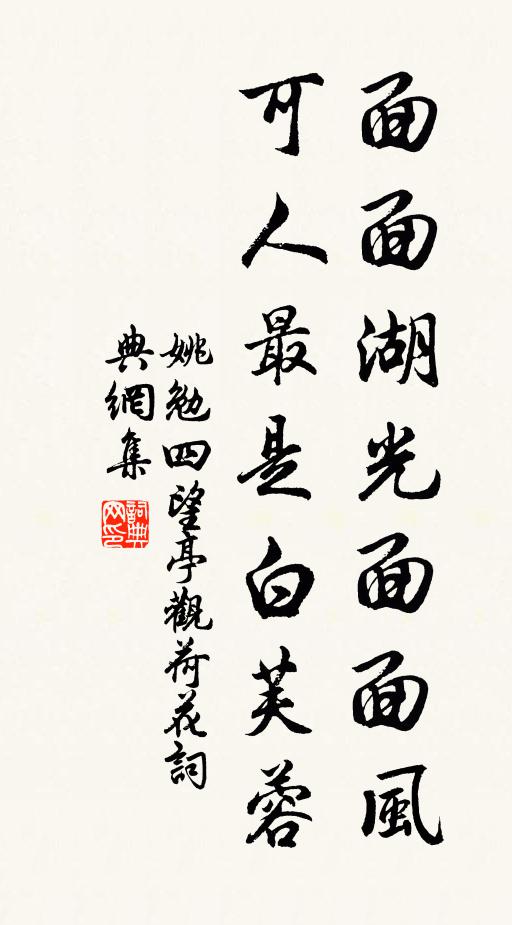 面面湖光面面風
可人最是白芙蓉
姚勉四望亭觀荷花詞
典網集
詞典
网印